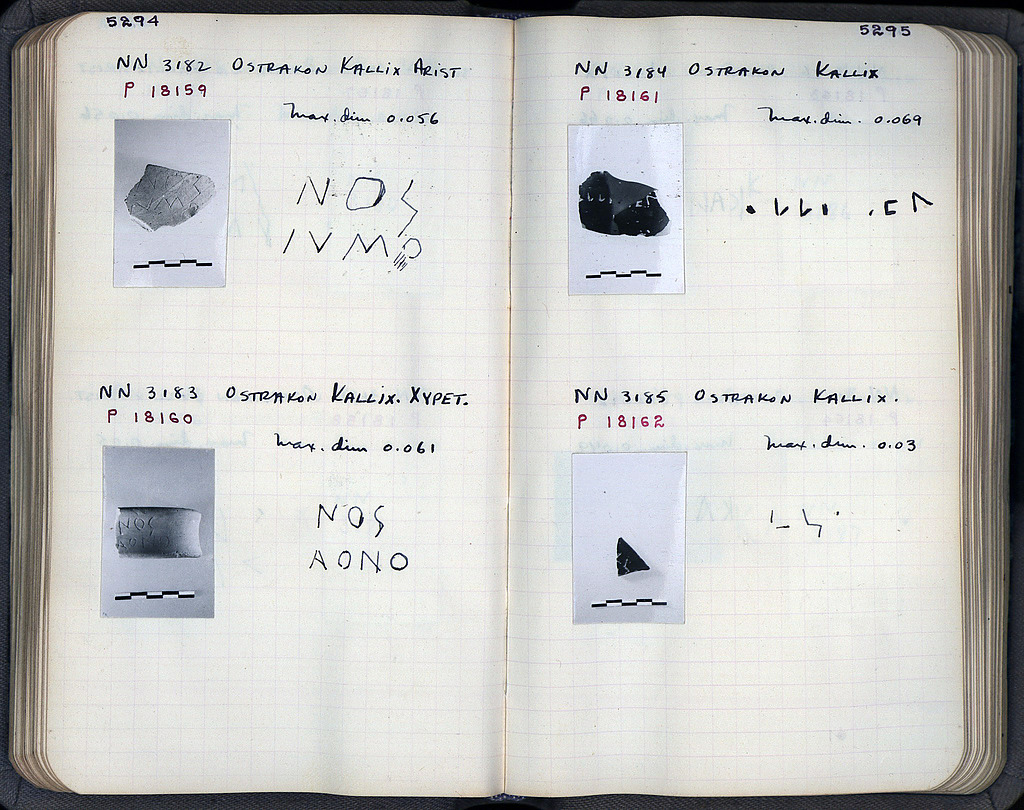 5294
NN 3182 OSTRAKON KALLIX ARIST
P 18159
Max. dim 0.056
ΝΟS
ΙVΜΟ
NN 3183 OSTRAKON KALLIX. XYPET.
P 18160
Max. dim 0.061
ΝΟS
ΑΟΝΟ
5295
NN 3184 OSTRAKON KALLIX
P 18161
Max. dim. 0.069
NN 3185 OSTRAKON KALLIX.
P 18162
Max. dim. 0.03